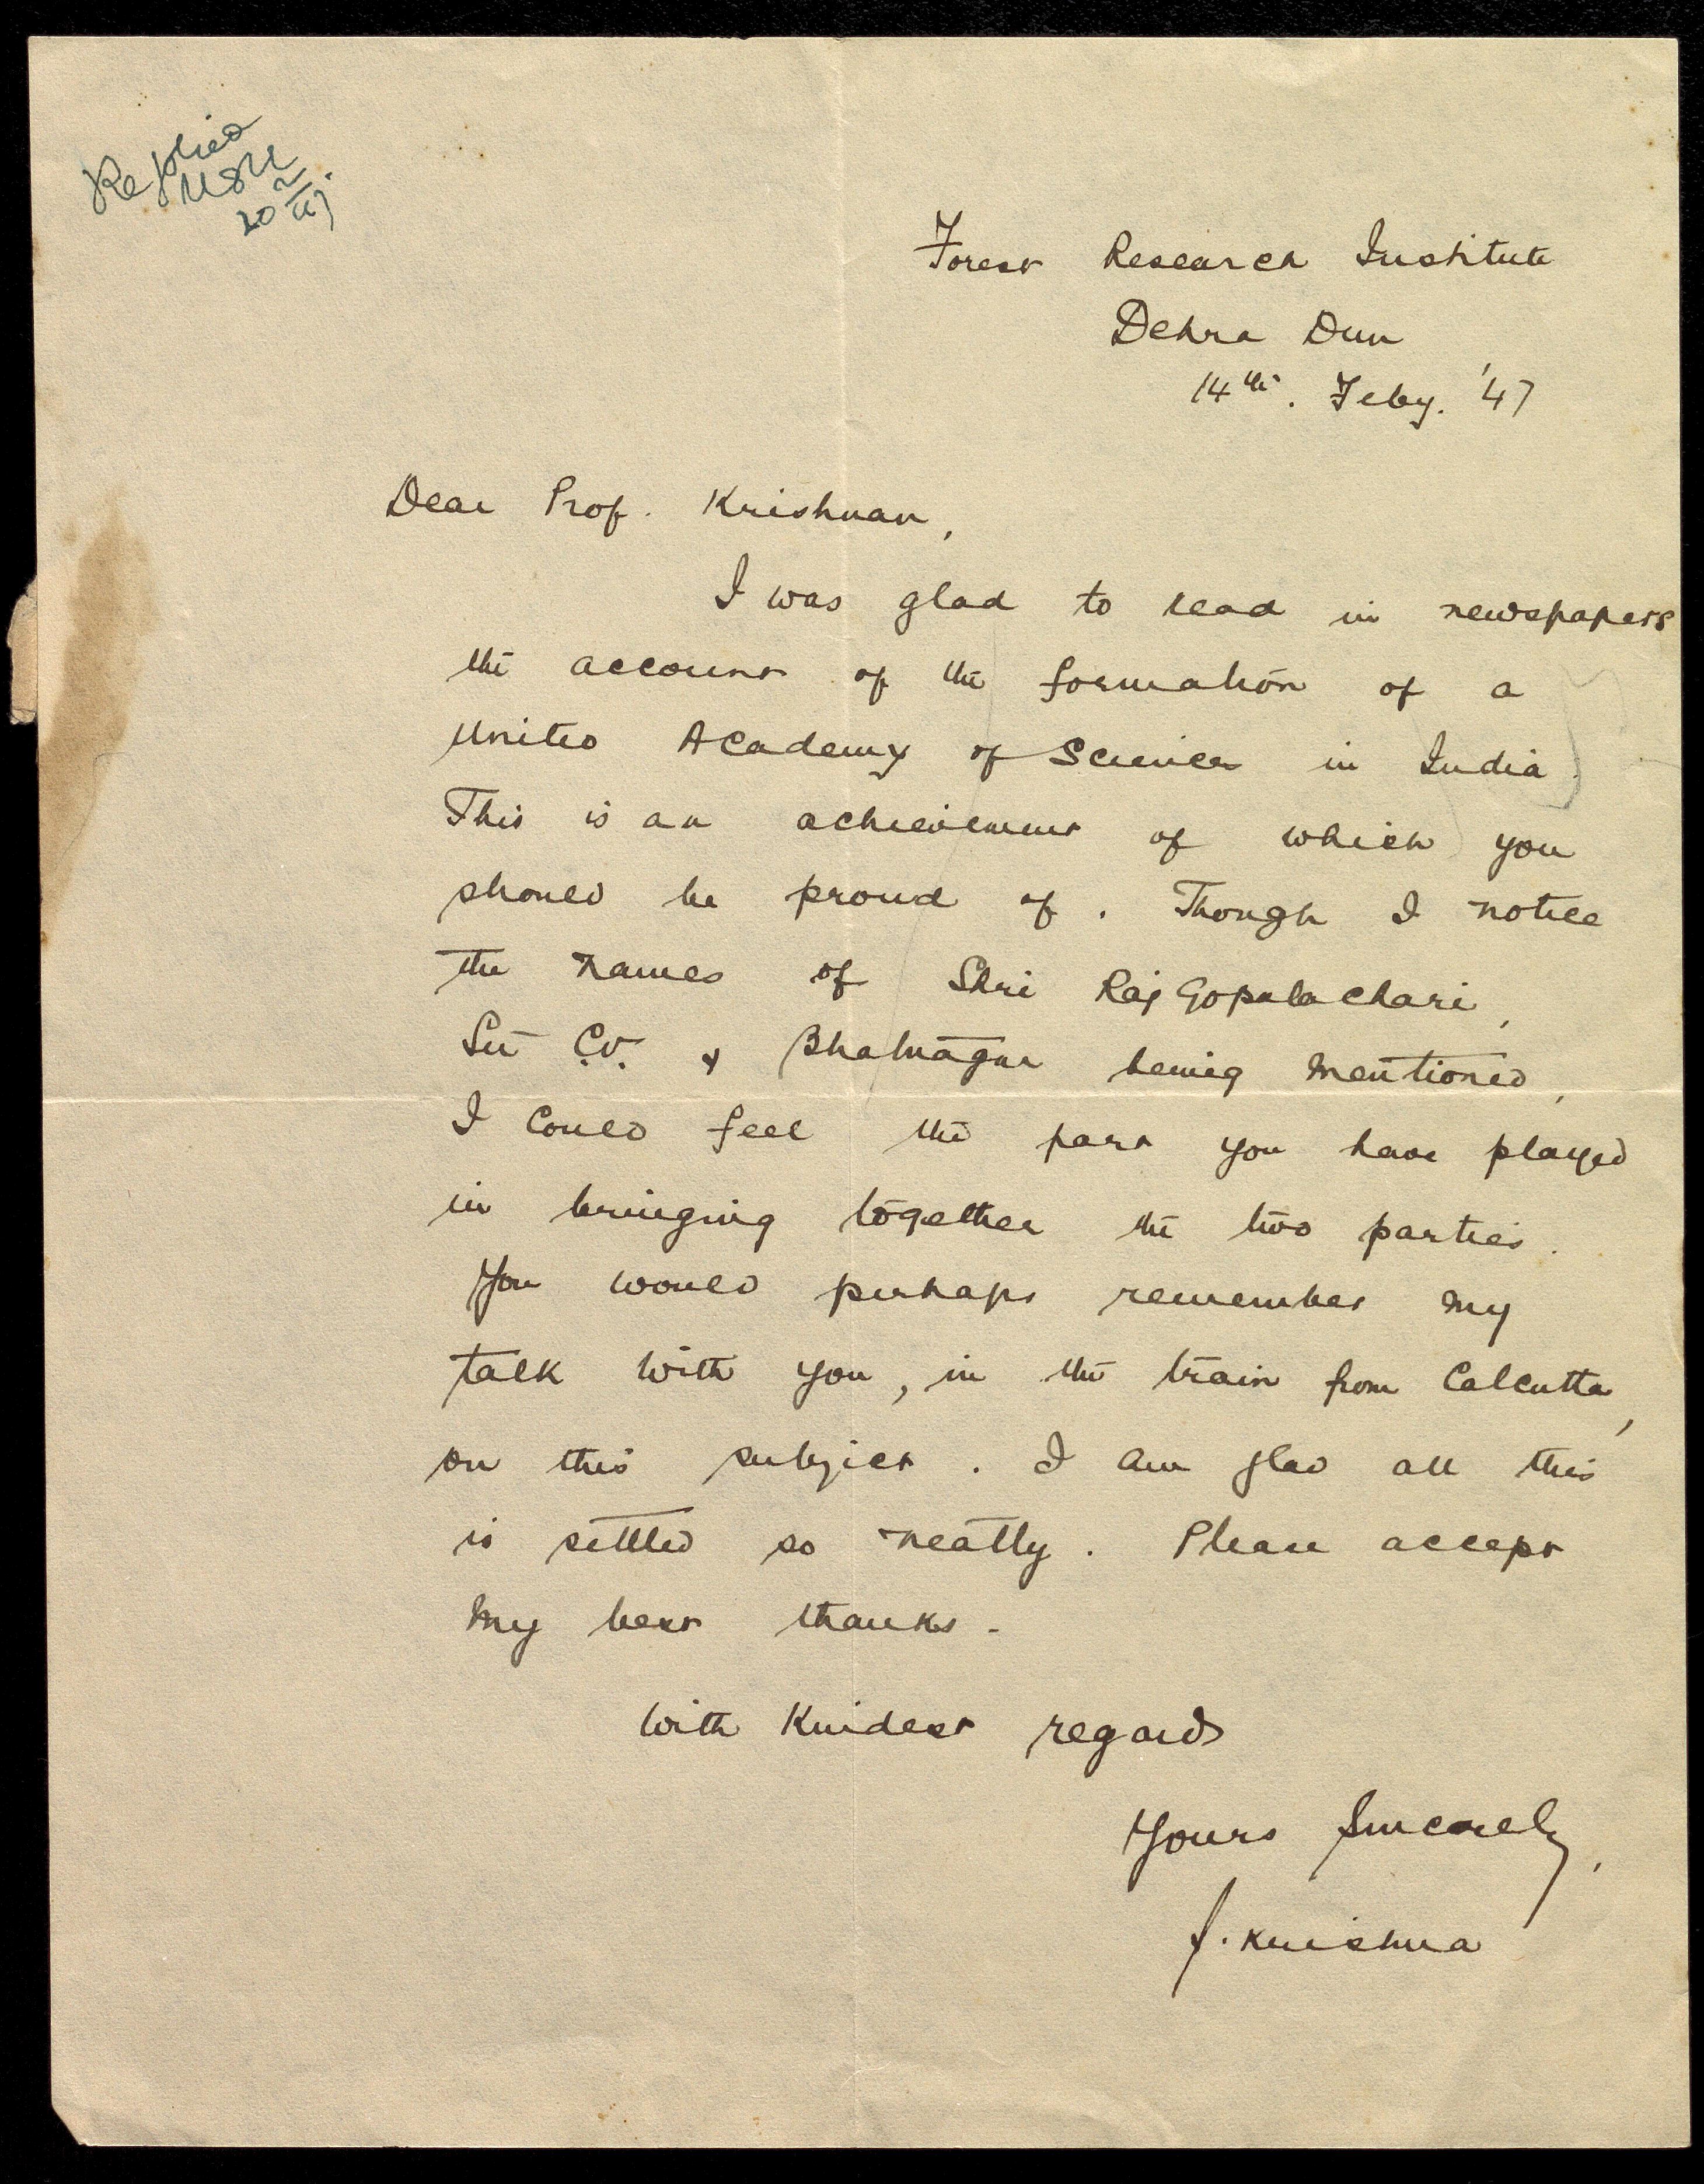 Replied
20/2/47.
Forest Research Institute
Dehra Dun
14th. Feby. '47
Dear Prof. Krishnan,
I was glad to read in newspapers
the account of the formation of a
United Academy of Sciences in India.
This is an achievement of which you
should be proud of. Though I notice
the names of Shri Raj Gopalachari,
Sir C.V. & Bhatnagar being mentioned,
I could feel the part you have played
in bringing together the two parties.
You would perhaps remember my
talk with you, in the train from Calcutta,
on this subject. I am glad all this
is settled so neatly. Please accept
my best thanks.
With kindest regards
Yours Sincerely,
S. Krishna